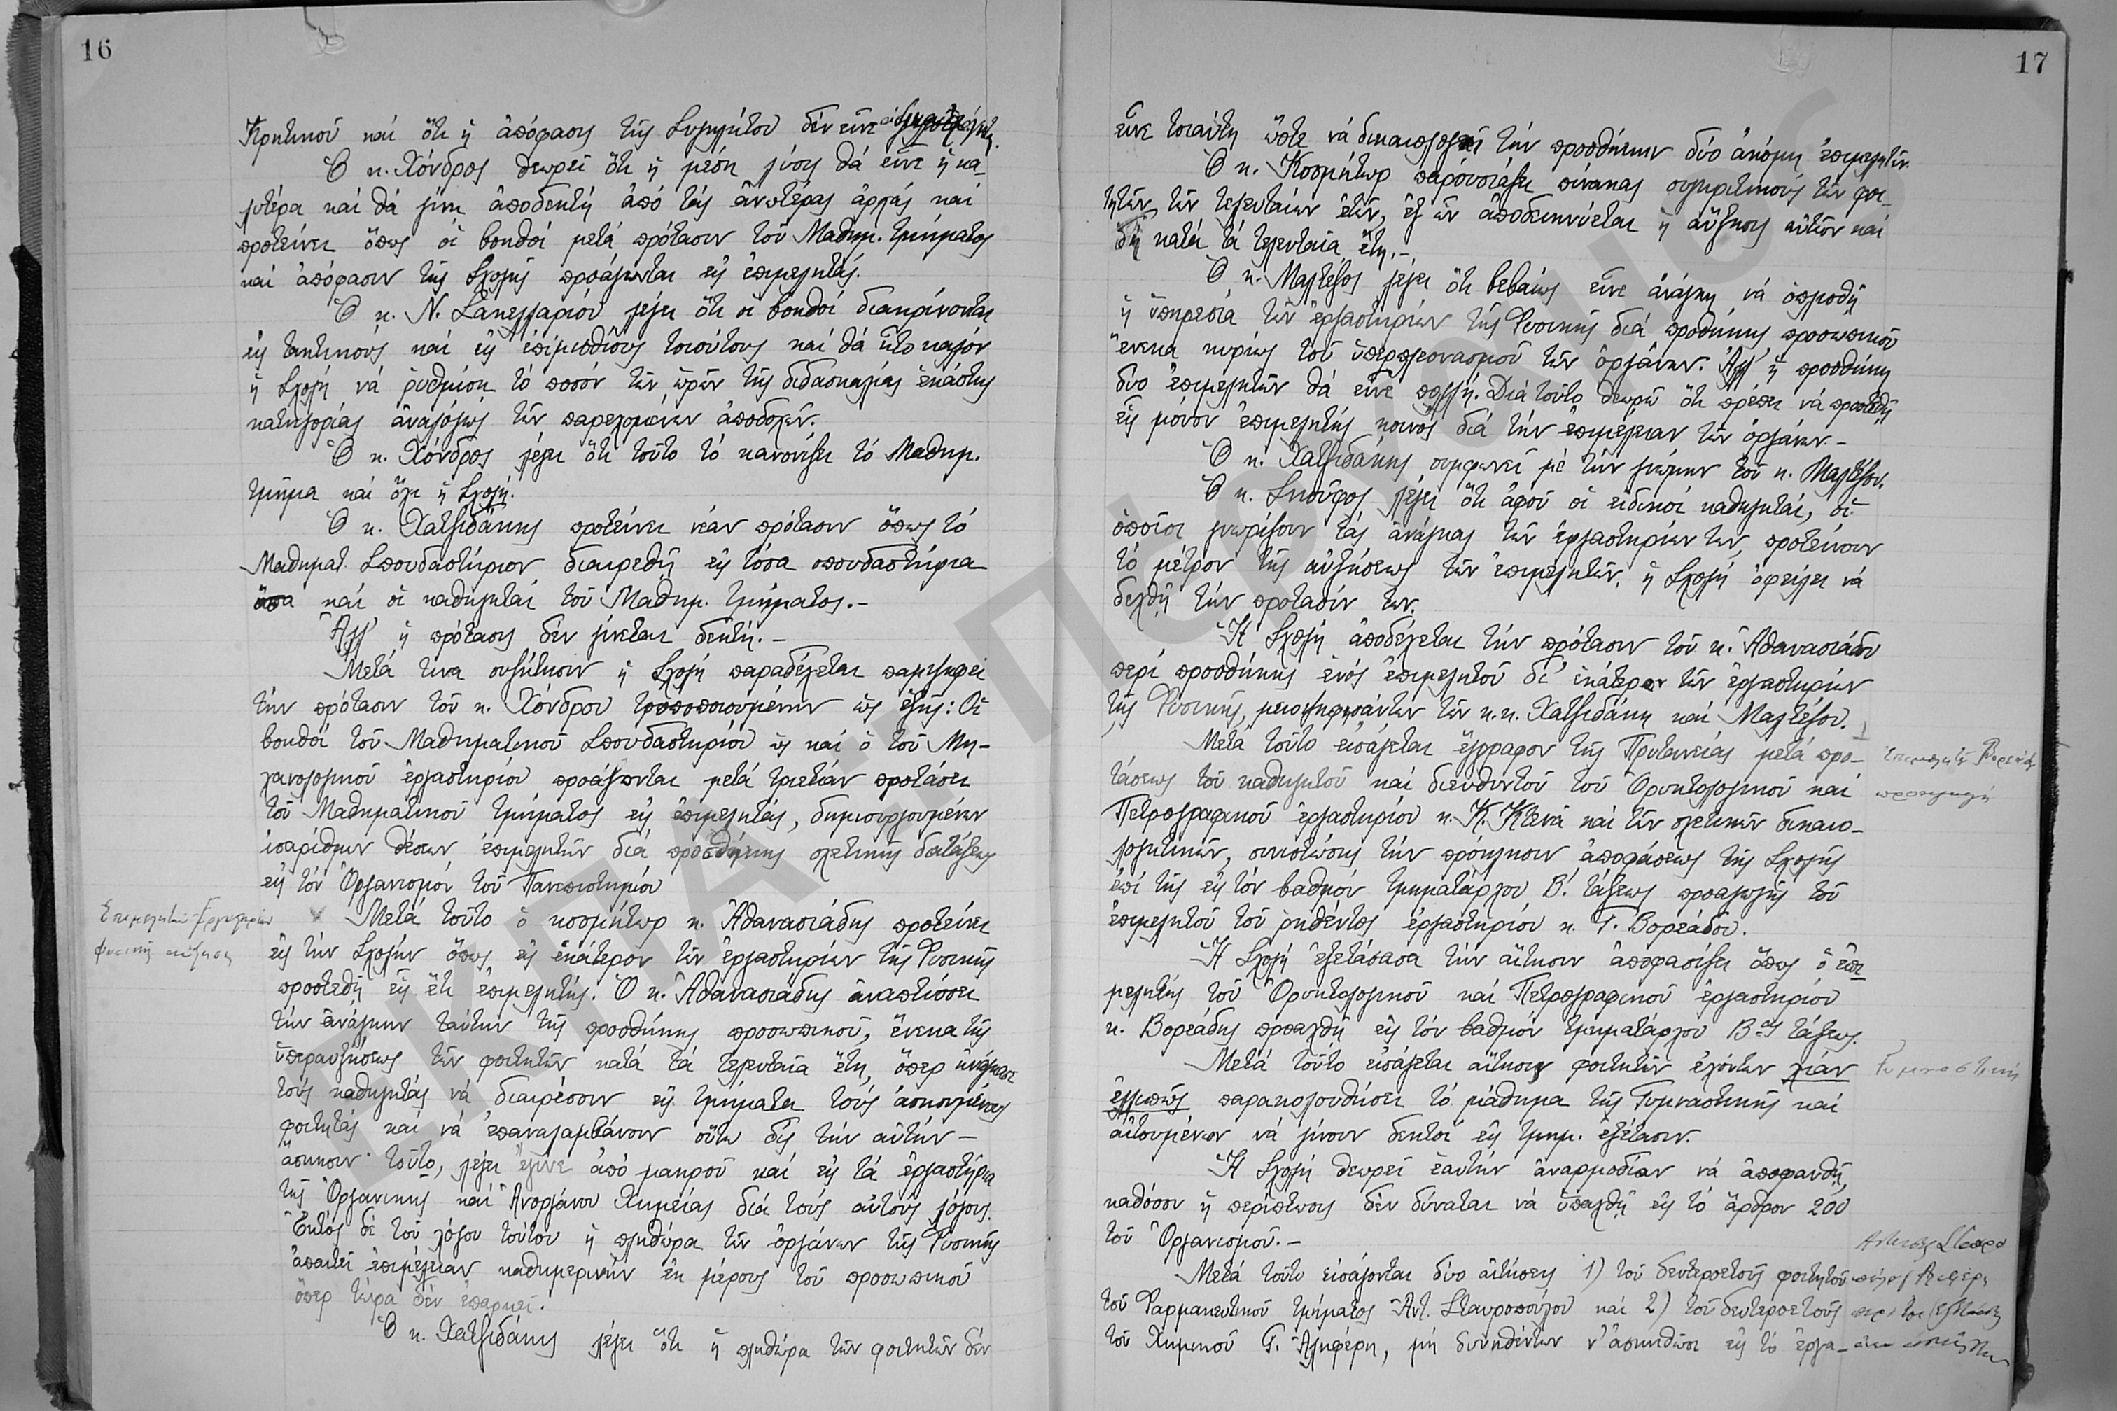 16
Κρητικοῦ καί ὅτι ἡ ἀπόφασις τῆς Συγκλήτου δέν εἶνε
Ὁ κ. Χόνδρος θεωρεῖ ὅτι ἡ μέση λύσις θά εἶνε ἡ κα-
λυτέρα καί θά γίνῃ ἀποδεκτή ἀπό τάς ἀνωτέρας ἀρχάς καί
προτείνει ὅπως οἱ βοηθοί μετά πρότασιν τοῦ Μαθημ. τμήματος
καί ἀπόφασιν τῆς Σχολῆς προάγωνται εἰς ἐπιμελητάς.
Ὁ κ. Ν. Σακελλαρίου λέγει ὅτι οἱ βοηθοί διακρίνονται
εἰς τακτικούς καί εἰς ἐπιμισθίους τοιούτους καί θά ἦτο καλόν
ἡ Σχολή νά ρυθμίσῃ τό ποσόν τῶν ὡρῶν τῆς διδασκαλίας ἑκάστης
κατηγορίας ἀναλόγως τῶν παρεχομένων ἀποδοχῶν.
Ὁ κ. Χόνδρος λέγει ὅτι τοῦτο τό κανονίζει τό Μαθημ.
τμῆμα καί ὄχι ἡ Σχολή.
Ὁ κ. Χατζιδάκης προτείνει νέαν πρότασιν ὅπως τό
Μαθηματ. Σπουδαστήριον διαιρεθῇ εἰς τόσα σπουδαστήρια
ὅσα καί οἱ καθηγηταί τοῦ Μαθημ. τμήματος.-
Ἀλλ' ἡ πρότασις δέν γίνεται δεκτή.-
Μετά τινα συζήτησιν ἡ Σχολή παραδέχεται παμψηφεί
τήν πρότασιν τοῦ κ. Χόνδρου τροποποιουμένην ὡς ἑξῆς: Οἱ
βοηθοί τοῦ Μαθηματικοῦ Σπουδαστηρίου ὡς καί ὁ τοῦ Μη-
χανολογικοῦ ἐργαστηρίου προάγονται μετά τριετίαν προτάσει
τοῦ Μαθηματικοῦ τμήματος εἰς ἐπιμελητάς, δημιουργουμένων
ἰσαρίθμων θέσεων ἐπιμελητῶν διά προσθήκης σχετικῆς διατάξεως
εἰς τόν Ὀργανισμόν τοῦ Πανεπιστημίου
Ἐπιμελητῶν Ἐργαστηρίων
Φυσικῆς αὔξησις
Μετά τοῦτο ὁ κοσμήτωρ κ. Ἀθανασιάδης προτείνει
εἰς τήν Σχολήν ὅπως εἰς ἑκάτερον τῶν ἐργαστηρίων τῆς Φυσικῆς
προστεθῇ εἷς ἔτι ἐπιμελητής. Ὁ κ. Ἀθανασιάδης ἀναπτύσσει
τήν ἀνάγκην ταύτην τῆς προσθήκης προσωπικοῦ, ἕνεκα τῆς
ὑπεραυξήσεως τῶν φοιτητῶν κατά τά τελευταῖα ἔτη, ὅπερ ἠνάγκασε
τούς καθηγητάς νά διαιρέσουν εἰς τμήματα τούς ἀσκουμένους
φοιτητάς καί νά ἐπαναλαμβάνουν οὕτω δίς τήν αὐτήν -
ἄσκησιν· τοῦτο, λέγει ἔγινε ἀπό μακροῦ καί εἰς τά ἐργαστήρια
τῆς Ὀργανικῆς καί Ἀνοργάνου Χημείας διά τούς αὐτούς λόγους.
Ἐκτός δέ τοῦ λόγου τούτου ἡ πληθώρα τῶν ὀργάνων τῆς Φυσικῆς
ἀπαιτεῖ ἐπιμέλειαν καθημερινήν ἐκ μέρους τοῦ προσωπικοῦ
ὅπερ τώρα δέν ἐπαρκεῖ.
Ὁ κ. Χατζιδάκης λέγει ὅτι ἡ πληθώρα τῶν φοιτητῶν δέν
17
εἶνε τοιαύτη ὥστε νά δικαιολογῇ τήν προσθήκην δύο ἀκόμη ἐπιμελητῶν.
Ὁ κ. Κοσμήτωρ παρουσιάζει πίνακας συγκριτικούς τῶν φοι-
τητῶν τῶν τελευταίων ἐτῶν, ἐξ ὧν ἀποδεικνύεται ἡ αὔξησις αὐτῶν καί
δή κατά τά τελευταῖα ἔτη.-
Ὁ κ. Μαλτέζος λέγει ὅτι βεβαίως εἶνε ἀνάγκη νά ὁπλισθῇ
ἡ ὑπηρεσία τῶν ἐργαστηρίων τῆς Φυσικῆς διά προσθήκης προσωπικοῦ
ἕνεκα κυρίως τοῦ ὑπερπλεονασμοῦ τῶν ὀργάνων. Ἀλλ' ἡ προσθήκη
δύο ἐπιμελητῶν θά εἶνε πολλή. Διά τοῦτο θεωρῶ ὅτι πρέπει νά προστεθῇ
εἷς μόνον ἐπιμελητής κοινός διά τήν ἐπιμέλειαν τῶν ὀργάνων.-
Ὁ κ. Χατζιδάκης συμφωνεῖ μέ τήν γνώμην τοῦ κ. Μαλτέζου.
Ὁ κ. Σκοῦφος λέγει ὅτι ἀφοῦ οἱ εἰδικοί καθηγηταί, οἱ
ὁποῖοι γνωρίζουν τάς ἀνάγκας τῶν ἐργαστηρίων των, προτείνουν
τό μέτρον τῆς αὐξήσεως τῶν ἐπιμελητῶν, ἡ Σχολή ὀφείλει νά
δεχθῇ τήν πρότασίν των.
Ἡ Σχολή ἀποδέχεται τήν πρότασιν τοῦ κ. Ἀθανασιάδου
περί προσθήκης ἑνός ἐπιμελητοῦ δι' ἑκάτερον τῶν ἐργαστηρίων
τῆς Φυσικῆς, μειοψηφησάντων τῶν κ.κ. Χατζιδάκη καί Μαλτέζου.
Μετά τοῦτο εἰσάγεται ἔγγραφον τῆς Πρυτανείας μετά προ-
τάσεως τοῦ καθηγητοῦ καί διευθυντοῦ τοῦ Ὀρυκτολογικοῦ καί
Πετρογραφικοῦ ἐργαστηρίου κ. Κ. Κτενᾶ καί τῶν σχετικῶν δικαιο-
λογητικῶν, συνιστώσης τήν πρόκλησιν ἀποφάσεως τῆς Σχολῆς
ἐπί τῆς εἰς τόν βαθμόν τμηματάρχου Β΄. τάξεως προαγωγῆς τοῦ
ἐπιμελητοῦ τοῦ ρηθέντος ἐργαστηρίου κ. Γ. Βορεάδου.
Ἐπιμελητοῦ Βορεάδη
προαγωγή
Ἡ Σχολή ἐξετάσασα τήν αἴτησιν ἀποφασίζει ὅπως ὁ ἐπι
μελητής τοῦ Ὀρυκτολογικοῦ καί Πετρογραφικοῦ ἐργαστηρίου
κ. Βορεάδης προαχθῇ εἰς τόν βαθμόν τμηματάρχου Βας τάξεως.
Μετά τοῦτο εἰσάγεται αἴτησις φοιτητῶν ἐχόντων λίαν
ἐλλιπῶς παρακολουθήσει τό μάθημα τῆς Γυμναστικῆς καί
αἰτουμένων νά γίνουν δεκτοί εἰς τμημ. ἐξέτασιν.
Γυμναστική
Ἡ Σχολή θεωρεῖ ἑαυτήν ἀναρμοδίαν νά ἀποφανθῇ,
καθόσον ἡ περίπτωσις δέν δύναται νά ὑπαχθῇ εἰς τό ἄρθρον 200
τοῦ Ὀργανισμοῦ.-
Μετά τοῦτο εἰσάγονται δύο αἰτήσεις 1) τοῦ δευτεροετοῦς φοιτητοῦ
τοῦ Φαρμακευτικοῦ τμήματος Ἀντ. Σταυροπούλου καί 2) τοῦ δευτεροετοῦς
τοῦ Χημικοῦ Γ. Ἀλιφέρη, μή δυνηθέντων ν' ἀσκηθῶσι εἰς τό ἐργα-